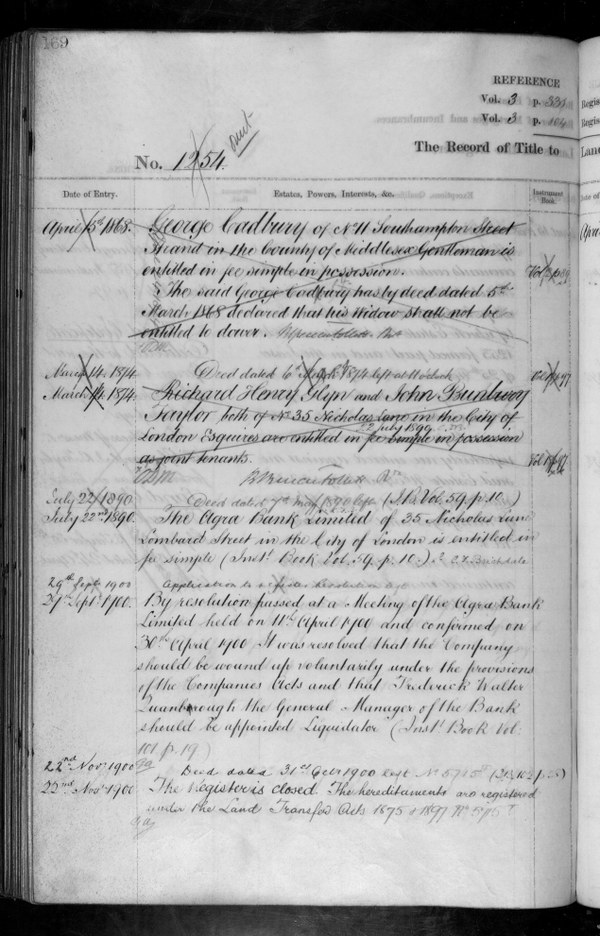 169
REFERENCE
Vol. 3 p. 334
Vol. 3 p.
The Record of Title to
No. 1254.
Date of Entry.
Estates, Powers, Interests, &c.
Instrument Book.
April 15th 1868.
George Cadbury of No 11 Southampton Street
Strand in the County of Middlesex Gentleman is
entitled in fee simple in possession.
The said George Cadbury has by deed dated 5th
March 1868 declared that his Widow shall not be
entitled to dower.
March 14. 1874.
Deed dated 6th 1874 left at 11 o'clock
March 14. 1874.
Richard Henry Glyn and John Bunbury
Taylor both of No 35 Nicholas Lane in the City of
London Esquires are entitled in fee simple in possession
as joint tenants.
July 22/1890.
Deed dated 7th May 1890 left (I.B. Vol. 59. p. 10.)
July 22nd 1890.
The Agra Bank Limited of 35 Nicholas Lane
Lombard Street in the City of London is entitled in
fee simple (Inst. Book Vol. 59. p. 10.)
29th Sept. 1900
Application to register
29th Sept. 1900.
By resolution passed at a Meeting of the Agra Bank
Limited held on 11th April 1900 and confirmed on
30th April 1900 It was resolved that the Company
should be wound up voluntarily under the provisions
of the Companies Acts and that Frederick Walter
the General Manager of the Bank
should be appointed Liquidator (Inst. Book Vol.
101 p. 19)
22nd Nov. 1900
Deed dated 31st Octr 1900 left
22nd Novr 1900.
The Register is closed. The hereditaments are registered
under the Land Transfer Acts 1875 & 1897